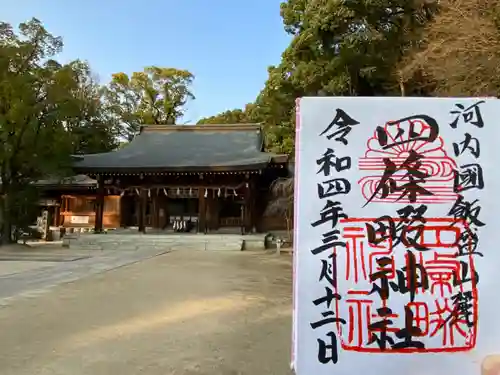 河内國飯盛山麓
四條畷神社
令和四年三月十二日